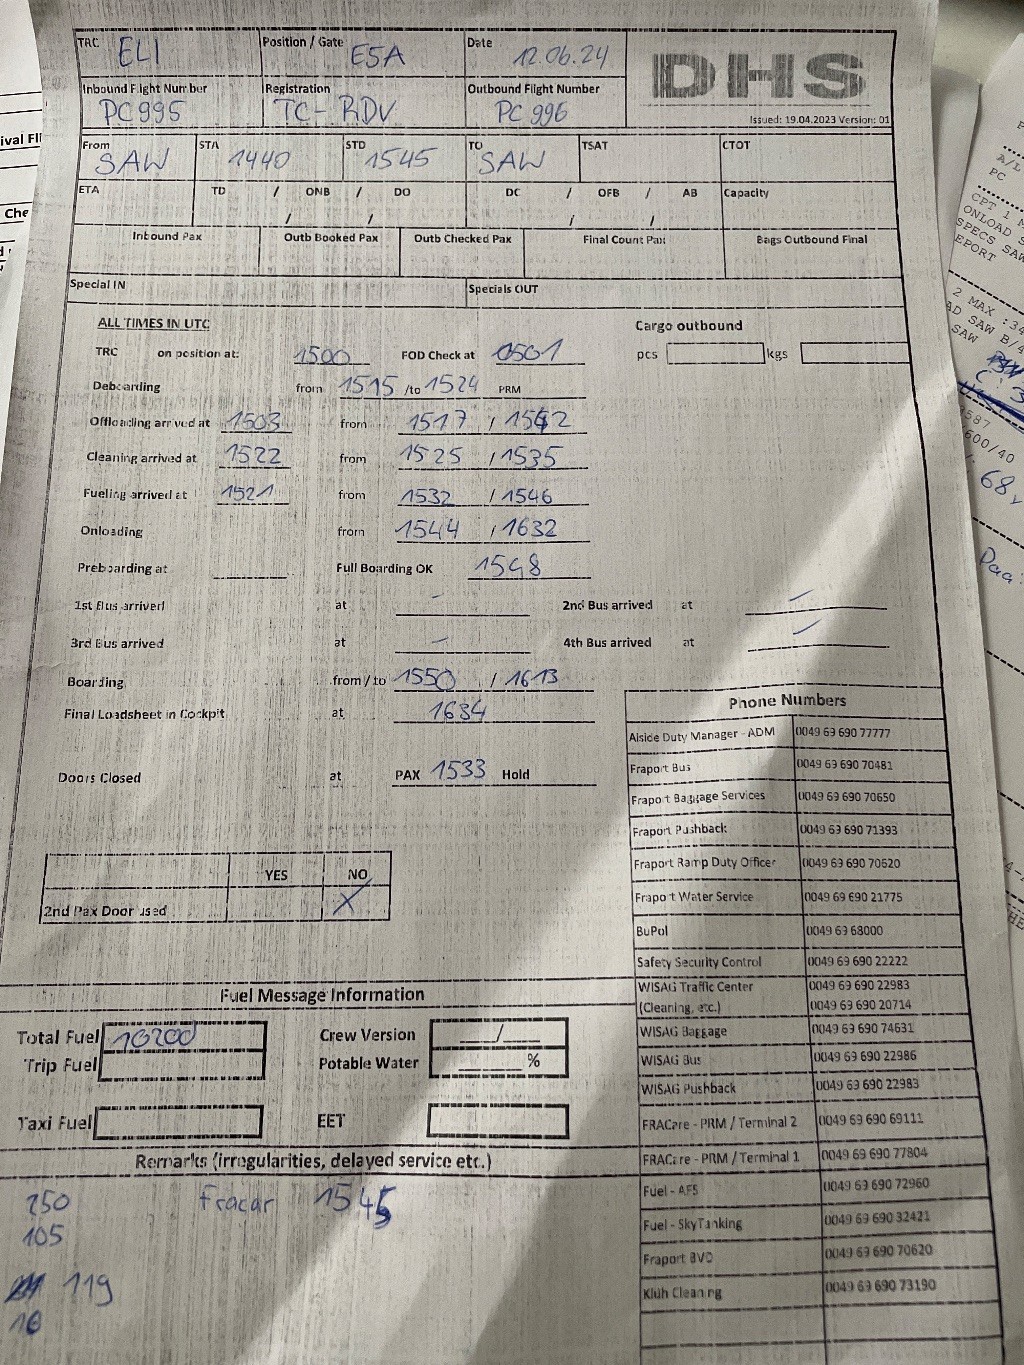 TRC ELI Position / Gate E5A Date 12.06.24 DHS
Inbound Flight Number PC 995 Registration TC-RDV Outbound Flight Number PC 996
Issued: 19.04.2023 Version: 01
From SAW STA 1440 STD 1545 TO SAW TSAT CTOT
ETA TD / ONB / DO DC / OFB / AB Capacity
/ / / /
Inbound Pax Outb Booked Pax Outb Checked Pax Final Count Pax Bags Outbound Final
Special IN Specials OUT
ALL TIMES IN UTC Cargo outbound
TRC on position at: 1500 FOD Check at 0501 pcs kgs
Deboarding from 1515 /to 1524 PRM
Offloading arrived at 1503 from 1517 / 1542
Cleaning arrived at 1522 from 1525 / 1535
Fueling arrived at 1521 from 1532 / 1546
Onloading from 1544 / 1632
Preboarding at Full Boarding OK 1548
1st Bus arrived at - 2nd Bus arrived at -
3rd Bus arrived at - 4th Bus arrived at -
Boarding from / to 1550 / 1613
Final Loadsheet in Cockpit at 1634
Doors Closed at PAX 1533 Hold
YES NO
2nd Pax Door used X
Phone Numbers
Aiside Duty Manager - ADM 0049 69 690 77777
Fraport Bus 0049 69 690 70481
Fraport Baggage Services 0049 69 690 70650
Fraport Pushback 0049 69 690 71393
Fraport Ramp Duty Officer 0049 69 690 70620
Fraport Water Service 0049 69 690 21775
BuPol 0049 69 68000
Safety Security Control 0049 69 690 22222
WISAG Traffic Center 0049 69 690 22983
(Cleaning, etc.) 0049 69 690 20714
WISAG Baggage 0049 69 690 74631
WISAG Bus 0049 69 690 22986
WISAG Pushback 0049 69 690 22983
FRACare - PRM / Terminal 2 0049 69 690 69111
FRACare - PRM / Terminal 1 0049 69 690 77804
Fuel - AFS 0049 69 690 72960
Fuel - SkyTanking 0049 69 690 32421
Fraport BVD 0049 69 690 70620
Klüh Cleaning 0049 69 690 73190
Fuel Message Information
Total Fuel 10200 Crew Version /
Trip Fuel Potable Water %
Taxi Fuel EET
Remarks (irregularities, delayed service etc.)
250 Fracar 1545
105
119
16
ival Fli
Che
A/L
PC
CPT 1
ONLOAD
SPECS SAW
EPORT
2 MAX :34
AD SAW B/4
SAW
587
600/40
68